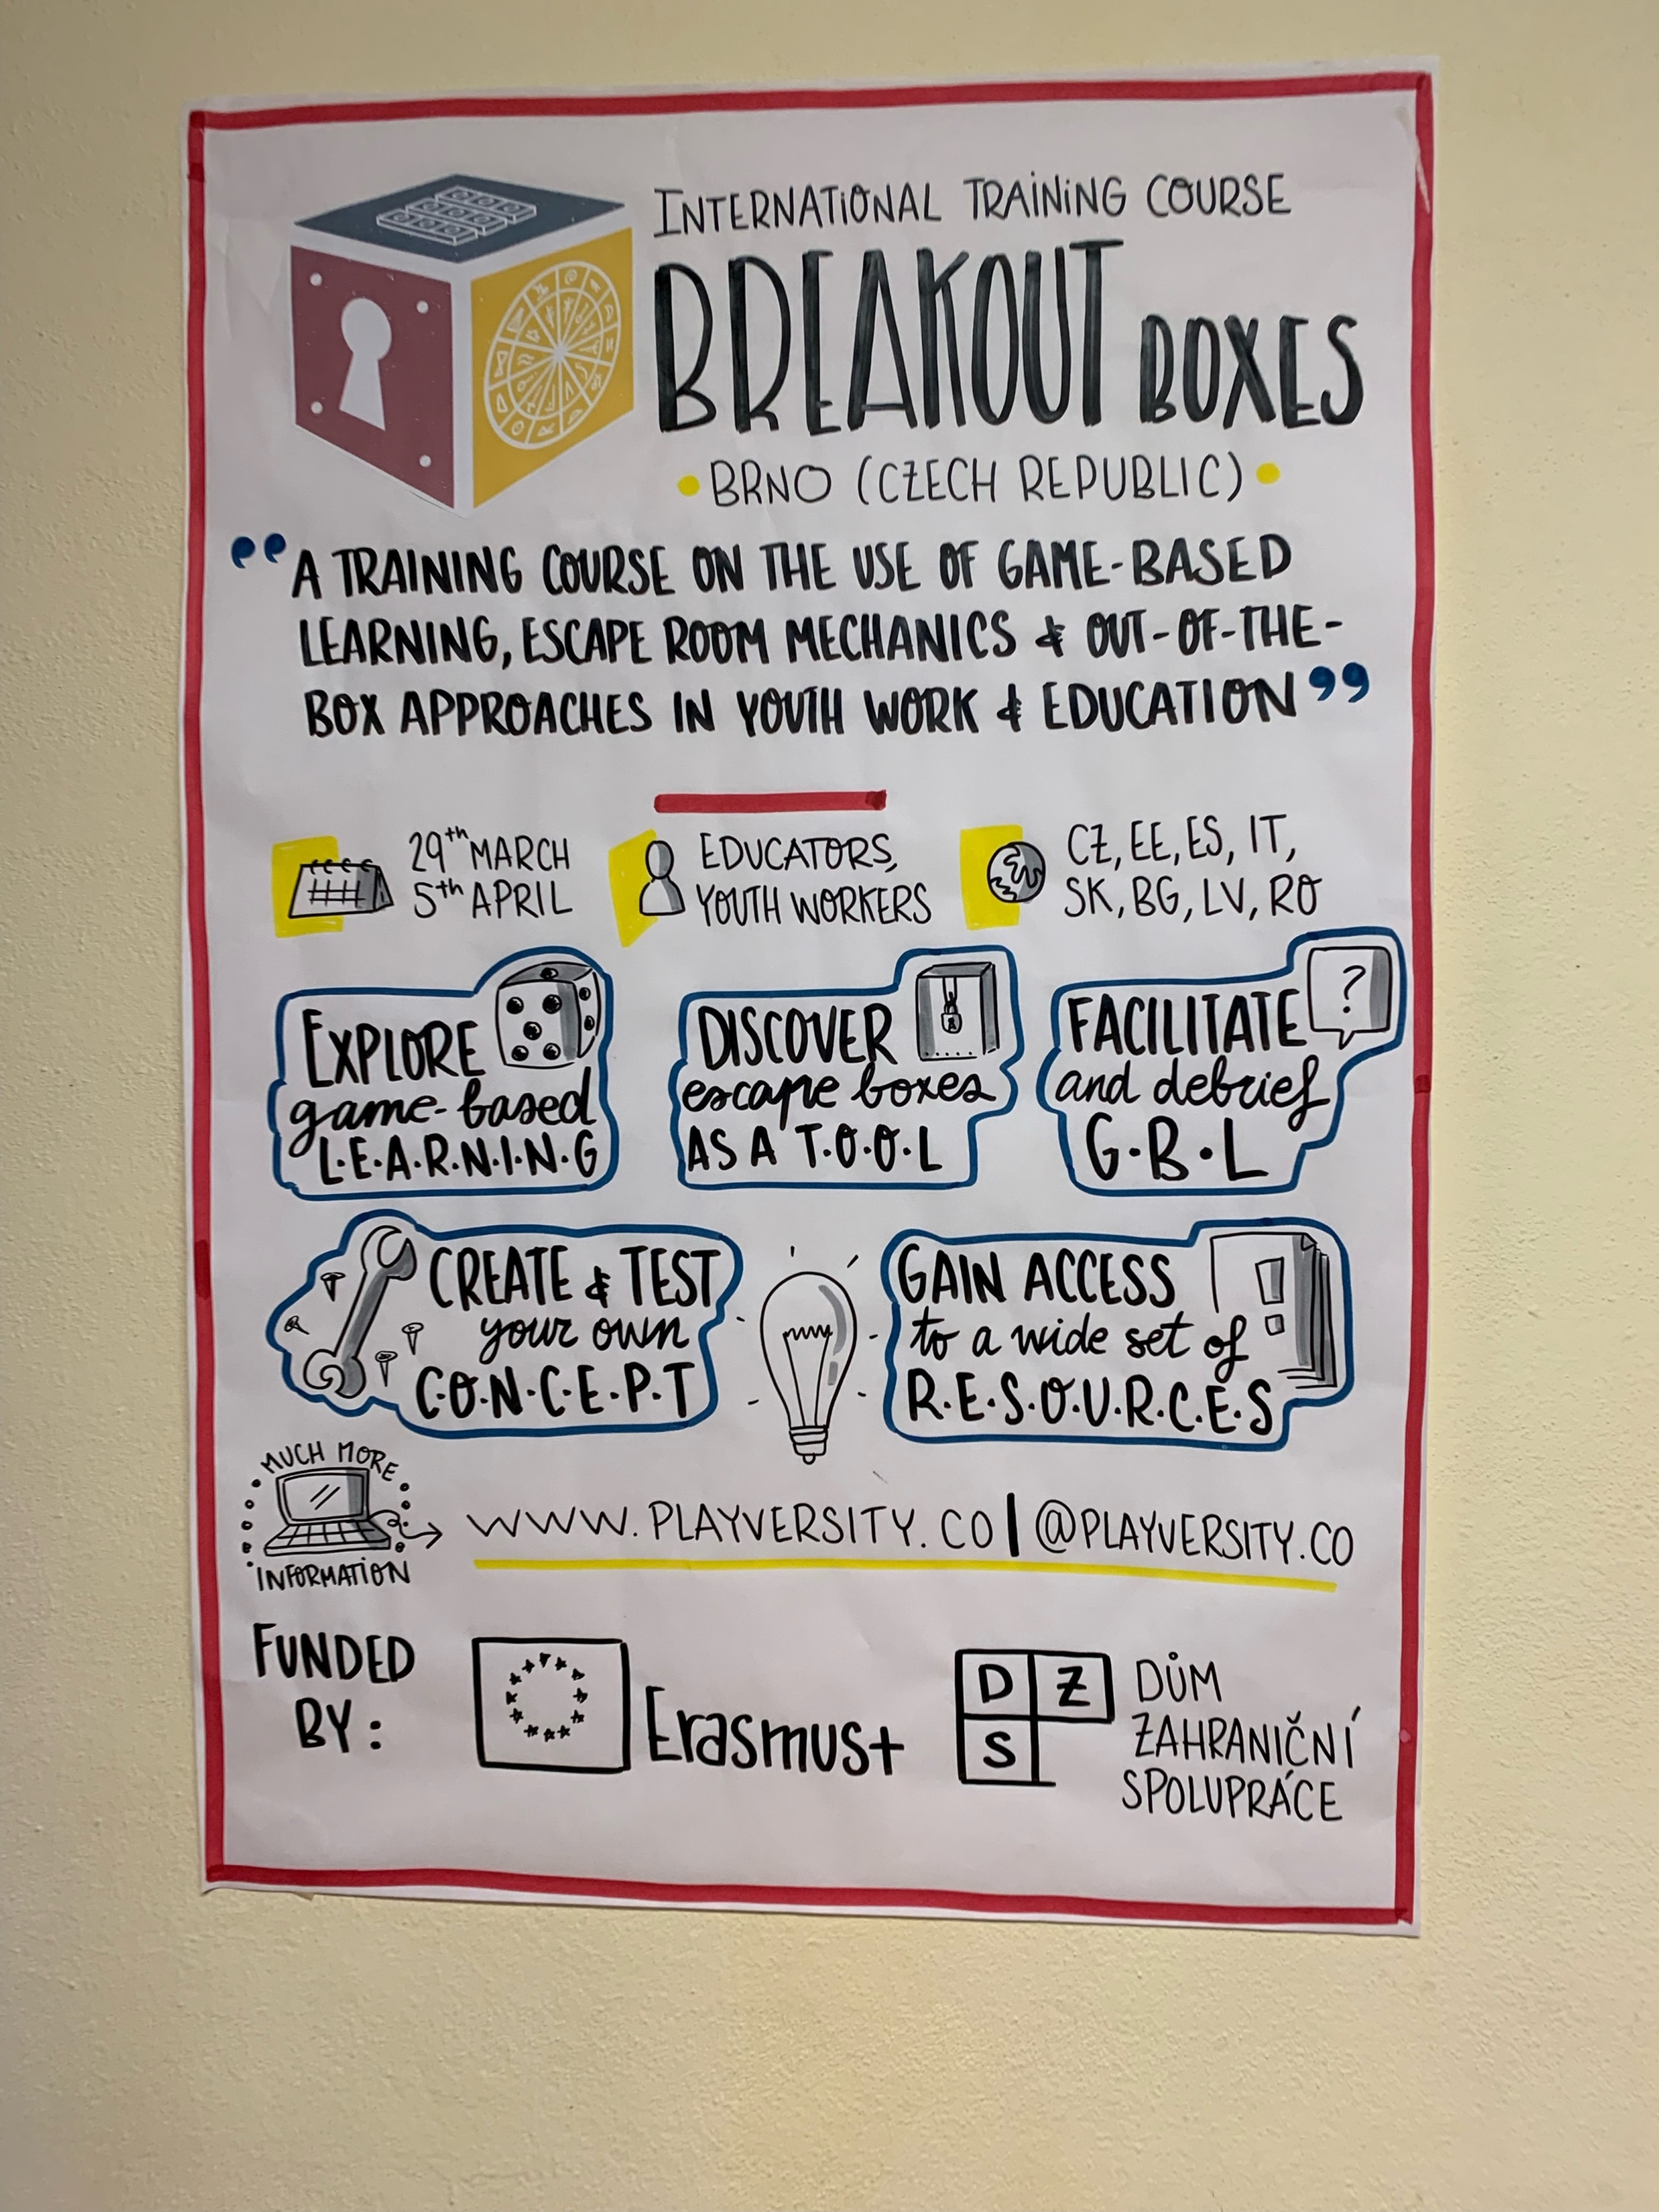 INTERNATIONAL TRAINING COURSE
BREAKOUT BOXES
• BRNO (CZECH REPUBLIC) •
“A TRAINING COURSE ON THE USE OF GAME-BASED
LEARNING, ESCAPE ROOM MECHANICS & OUT-OF-THE-
BOX APPROACHES IN YOUTH WORK & EDUCATION”
29th MARCH
5th APRIL
EDUCATORS,
YOUTH WORKERS
CZ, EE, ES, IT,
SK, BG, LV, RO
EXPLORE
game-based
L·E·A·R·N·I·N·G
DISCOVER
escape boxes
AS A T·O·O·L
FACILITATE
and debrief
G·B·L
?
CREATE & TEST
your own
C·O·N·C·E·P·T
GAIN ACCESS
to a wide set of
R·E·S·O·U·R·C·E·S
MUCH MORE
INFORMATION
WWW.PLAYVERSITY.CO | @PLAYVERSITY.CO
FUNDED
BY:
Erasmus+
D Z
S
DŮM
ZAHRANIČNÍ
SPOLUPRÁCE